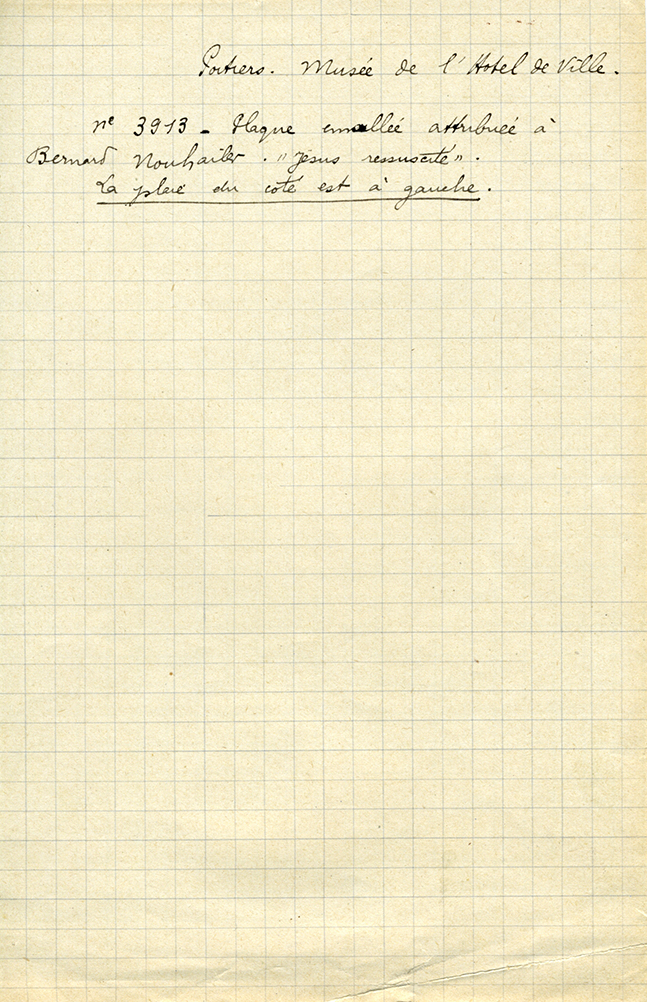 Poitiers. Musée de l'Hotel de Ville.
nº 3913 - Plaque emaillée attribuée à
Bernard Nouhailer. "Jésus ressuscité".
La plaie du coté est à gauche.